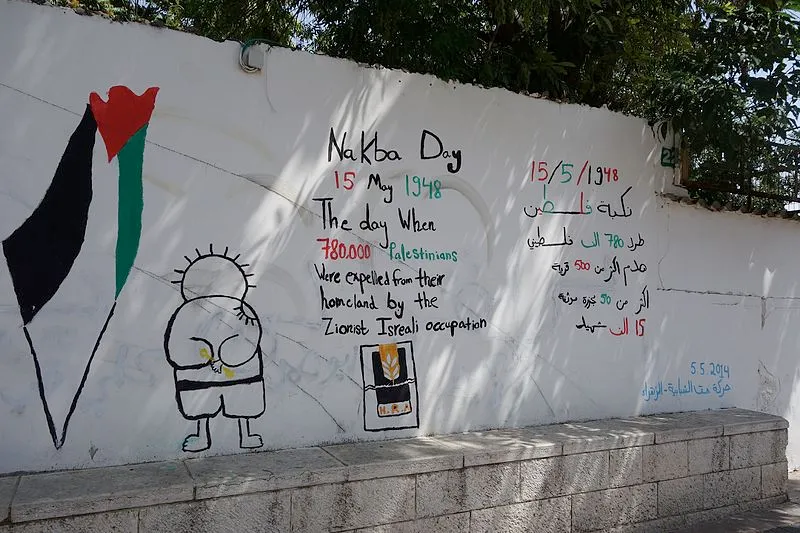 Nakba Day
15 May 1948
The day When
780.000 Palestinians
Were expelled from their
homeland by the
Zionist Isreali occupation
H.R.A
15/5/1948
نكبة فلسطين
طرد 780 الف فلسطيني
هدم اكثر من 500 قرية
اكثر من 50 مجزرة موثقة
15 الف شهيد
5.5.2014
حركة الشبابية - الزهراء
22